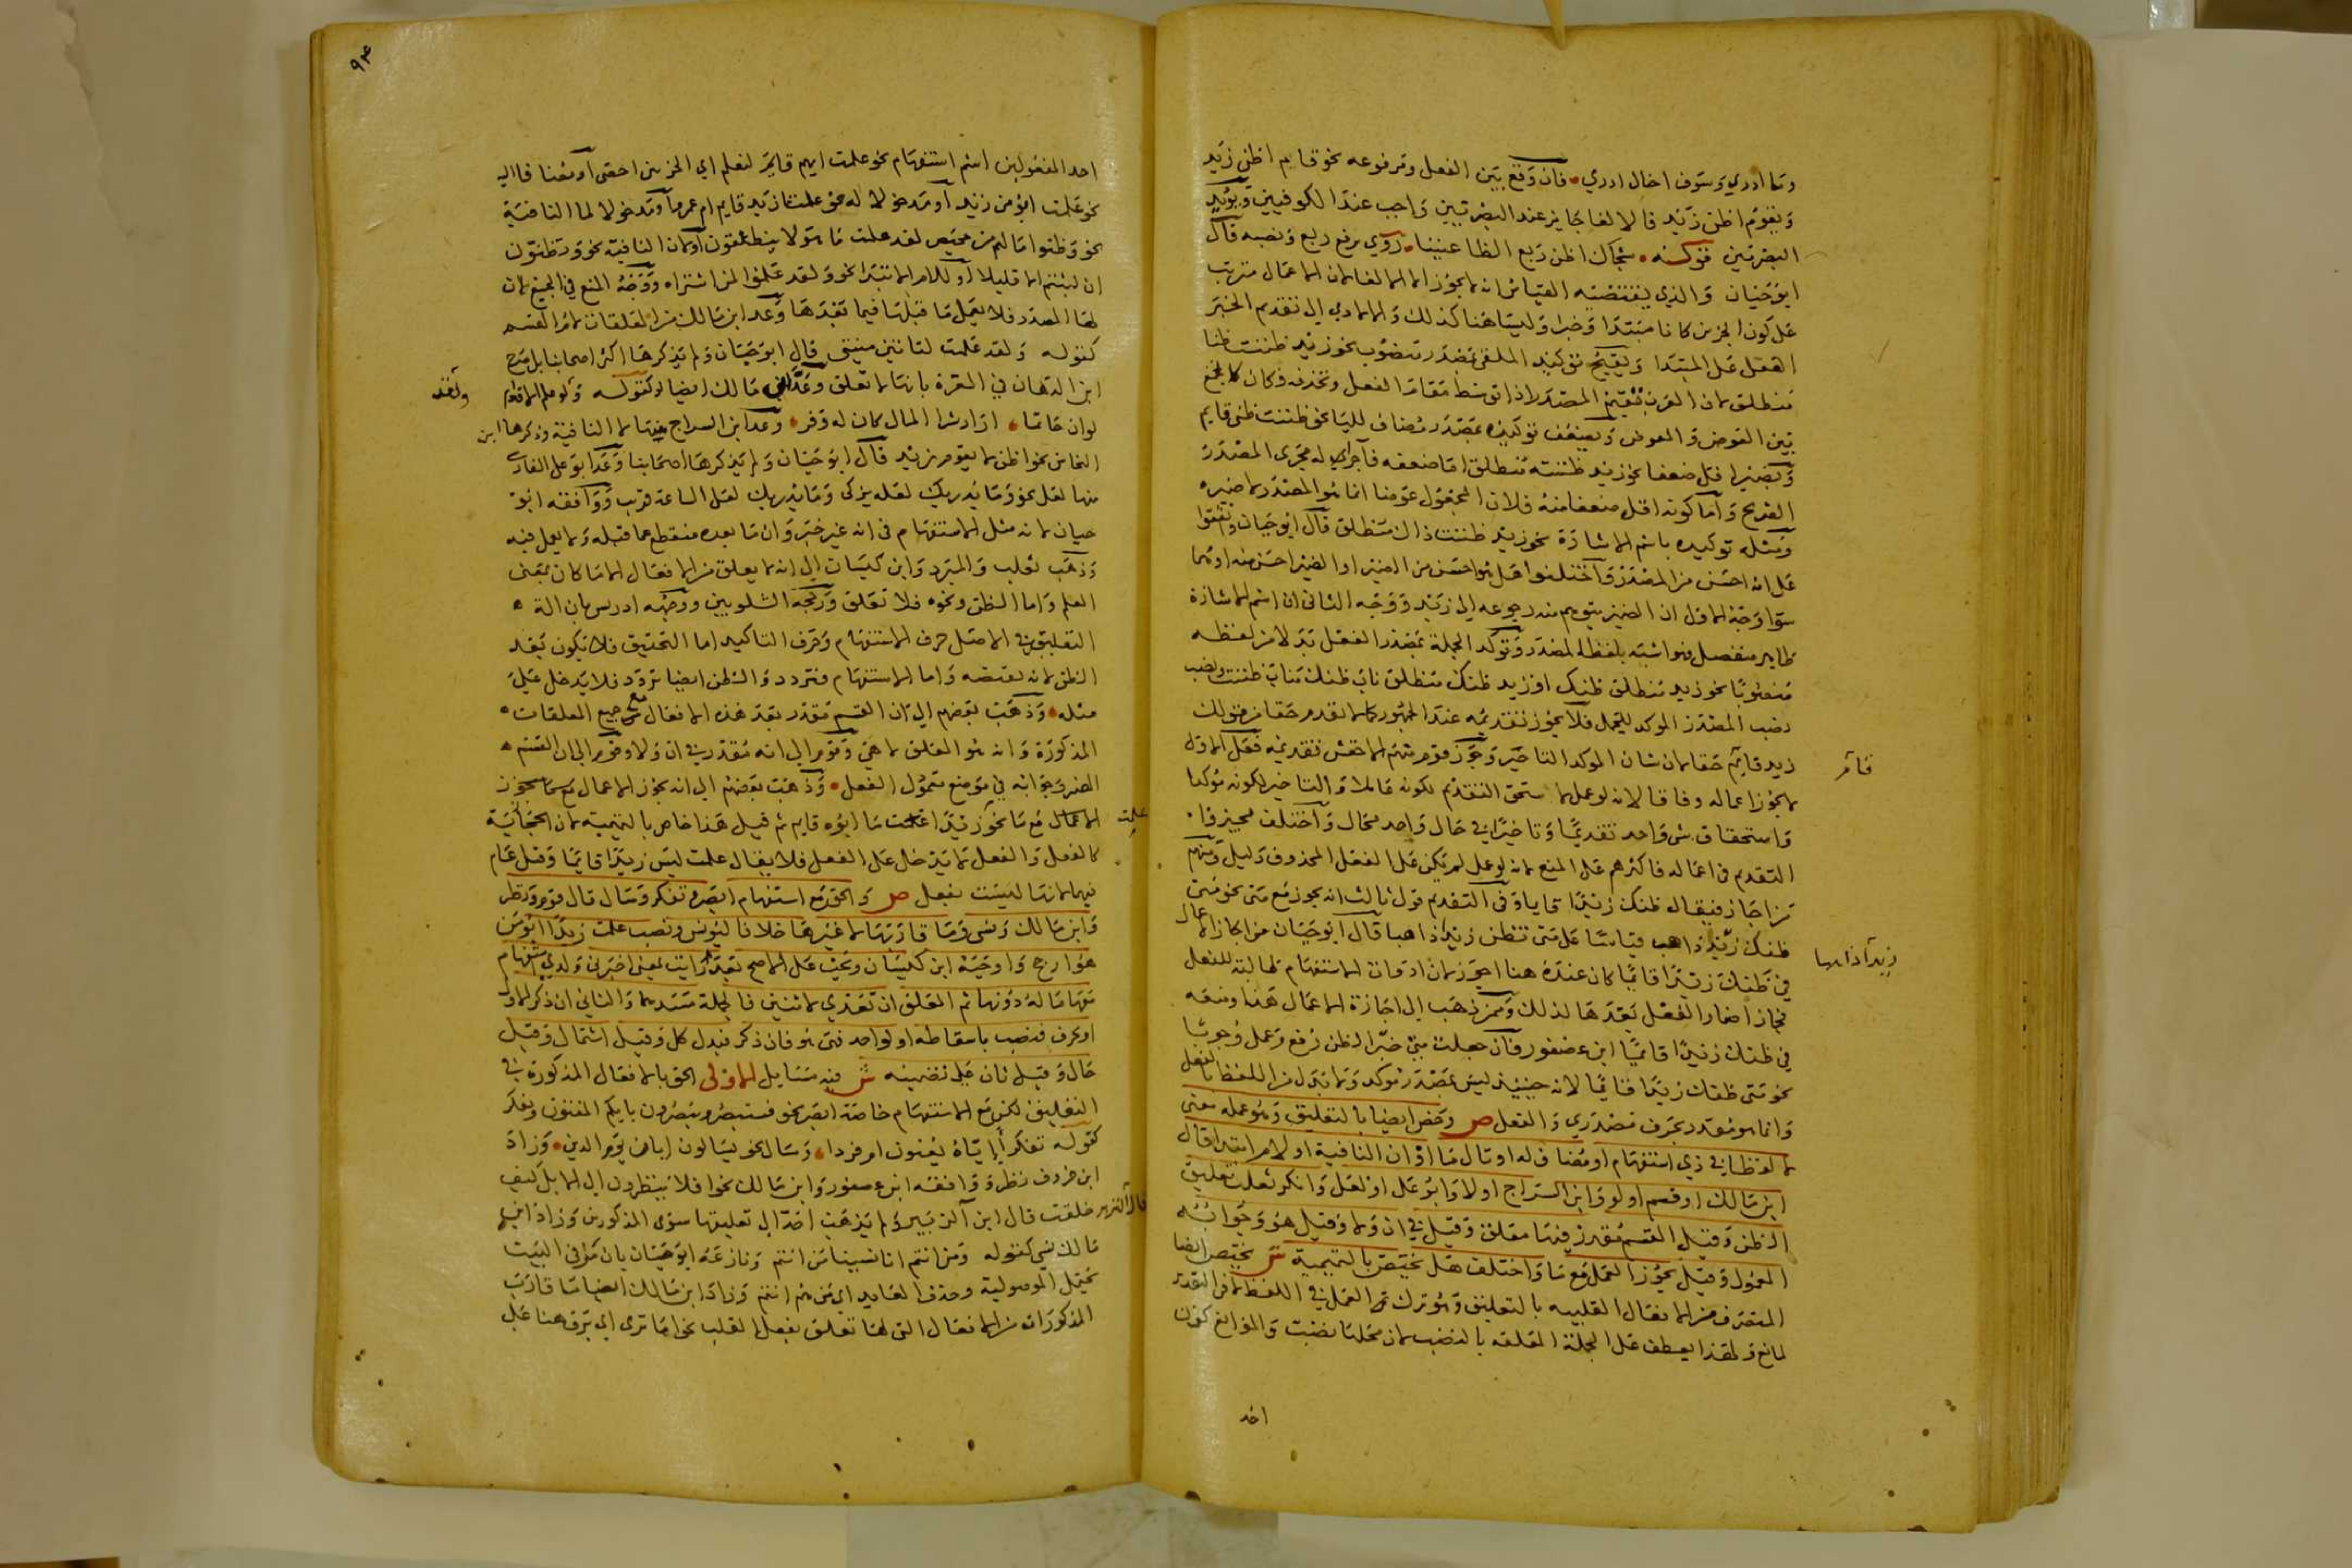 وما ادري وسوف اخال ادري فان وقع بين الفعل ومرفوعه نحو قايم اظن زيد
ويقوم اظن زيد فالالغا جايز عند البصريين واجب عند الكوفيين ويويد
البصريين قوله شجاك اظن ربع الظاعنينا روي برفع ربع ونصبه قال
ابو حيان والذي يقتضيه القياس انه لا يجوز الا الالغا لان الاعمال مترتب
على كون الجزين كانا مبتدا وخبرا وليسا هنا كذلك والا لادى الى تقديم الخبر
الفعل على المبتدا ويقبح توكيد الملغى بمصدر منصوب نحو زيد ظننت ظنا
منطلق لان العرب تقيم المصدر اذا توسط مقام الفعل وتحذفه فكان كالجمع
بين العوض والمعوض ويضعف توكيده بمصدر مضاف لليا نحو ظننت ظني قايم
وبضمير اقل ضعفا نحو زيد ظننته منطلق اما ضعفه فاجراء له مجرى المصدر
الصريح واما كونه اقل ضعفا منه فلان المجعول عوضا انما هو المصدر لا ضميره
ومثله توكيده باسم الاشارة نحو زيد ظننت ذاك منطلق قال ابو حيان واتفقوا
على انه احسن من المصدر واختلفوا هل هو احسن من الضمير او الضمير احسن منه او هما
سوا وجه الاول ان الضمير يتوهم منه رجوعه الى زيد ووجه الثاني ان اسم الاشارة
ظاهر منفصل فهو اشبه بلفظ المصدر وتوكد الجملة بمصدر الفعل بدلا من لفظه
منصوبا نحو زيد منطلق ظنك او زيد ظنك منطلق ناب ظنك مناب ظننت ونصب
نصب المصدر الموكد للجمل فلا يجوز تقديمه عند الجمهور كما لا تقدم حقا من قولك
زيد قايم حقا لان شان الموكد التاخير وجوز قوم منهم الاخفش تقديمه فعلى الاول
قائم
لا يجوز اعماله وفاقا لانه لو عمل لاستحق التقديم لكونه عاملا والتاخير لكونه موكدا
واستحقاق شي واحد تقديما وتاخيرا في حال واحد محال واختلف مجيزوا
التقديم في اعماله فاكثرهم على المنع لانه لو عمل لم يكن على الفعل المحذوف دليل ومنهم
من اجاز فيقال ظنك زيدا قايما وفي التقديم قول ثالث انه يجوز مع متى نحو متى
ظنك زيد ذاهب قياسا على متى تظن زيدا ذاهبا قال ابو حيان من اجاز اعمال
زيدا ذاهبا
في ظنك زيدا قائما كان عنده هنا اجوز لان ادوات الاستفهام طالبة للفعل
فجاز اضمار الفعل بعدها لذلك وممن ذهب الى اجازة الاعمال هنا ومنعه
في ظنك زيدا قايما ابن عصفور فان جعلت متى خبرا لظن رفع وعمل وجوبا
نحو متى ظنك زيدا قائما لانه حينيذ ليس بمصدر موكد ولا بدل من اللفظ بالفعل
وانما هو مقدر بحرف مصدري والفعل ص وخص ايضا بالتعليق وهو عمله معنى
لا لفظا في ذي استفهام او مضاف له او تال ما او ان النافية او لام ابتدا قال
ابن مالك او قسم او لو وابن السراج او لا وابو علي او لعل وانكر ثعلب تعليق
الظن وقيل القسم مقدر فيها معلق وقيل في ان ولا وقيل هو وجوابه
المعمول وقيل يجوز العمل مع ما واختلف هل يختص بالتميمية ش يختص ايضا
المتصرف من الافعال القلبيه بالتعليق وهو ترك العمل في اللفظ لا في التقدير
لمانع ولهذا يعطف على الجملة المعلقة بالنصب لان محلها نصب والموانع كون
احد
٩٤
احد المفعولين اسم استفهام نحو علمت ايهم قايم لنعلم اي الحزبين احصى او مضافا اليه
نحو علمت ابو من زيد او مدخولا له نحو علمت ازيد قايم ام عمرو او مدخولا لما النافية
نحو وظنوا ما لهم من محيص لقد علمت ما هولا ينطقون او لان النافية نحو وتظنون
ان لبثتم الا قليلا او للام الابتدا نحو ولقد علموا لمن اشتراه ووجه المنع في الجميع لان
لها الصدر فلا يعمل ما قبلها فيما بعدها وعد ابن مالك من المعلقات لام القسم
كقوله ولقد علمت لتاتين منيتي قال ابو حيان ولم يذكرها اكثر اصحابنا بل صرح
ابن الدهان في الغرة بانها لا تعلق وعد ابن مالك ايضا لو كقوله ولو علم الاقوام
ولقد
لو ان حاتما اراد ثرا المال كان له وفر وعد ابن السراج فيها لا النافية وذكرها ابن
النحاس نحو اظن لا يقوم زيد قال ابو حيان ولم يذكرها اصحابنا وعد ابو علي الفارسي
منها لعل نحو وما يدريك لعله يزكى وما يدريك لعل الساعة قريب ووافقه ابو
حيان لانه مثل الاستفهام في انه غير خبر وان ما بعده منقطع عما قبله ولا يعمل فيه
وذهب ثعلب والمبرد وابن كيسان الى انه لا يعلق من الافعال الا ما كان بمعنى
العلم واما الظن ونحوه فلا تعلق ورجحه الشلوبين ووجهه ادريس بان الة
التعليق في الاصل حرف الاستفهام وحرف التاكيد اما التحقيق فلا يكون بعد
الظن لانه نقيضه واما الاستفهام فتردد والظن ايضا تردد فلا يدخل على
مثله وذهب بعضهم الى ان القسم مقدر بعد هذه الافعال مع جميع المعلقات
المذكورة وانه هو المعلق لا هي وقوم الى انه مقدر في ان ولا وقوم الى ان القسم
المضمر وجوابه في موضع معمول الفعل وذهب بعضهم الى انه يجوز الاعمال مع ما يجوز
الاعمال مع ما نحو زيدا علمت ما ابوه قايم ثم قيل هذا خاص بالتميمية لان الحجازية
علمت
كالفعل والفعل لا يدخل على الفعل فلا يقال علمت ليس زيدا قايما وقيل عام
فيهما لانها ليست بفعل ص والحق مع استفهام ابصر وتفكر وسال قال قوم ونظر
وابن مالك ونسي وما قاربها لا غيرها خلافا ليونس ونصب علمت زيدا ابو من
هو ارجح واوجبه ابن كيسان ويجب على الاصح بعد ارايت بمعنى اخبرني ولذي استفهام
بها ما له دونها ثم المعلق ان تعدى لاثنين فالجملة مسدهما والثاني ان ذكر الاول
او بحرف فنصب باسقاطه او لواحد فهي هو فان ذكر فبدل كل وقيل اشتمال وقيل
حال وقيل ثان على تضمينه ش فيه مسايل الاولى الحق بالافعال المذكورة في
التعليق لكن مع الاستفهام خاصة ابصر نحو فستبصر ويبصرون بايكم المفتون وتفكر
كقوله تفكر أإياه يعنون ام قردا وسال نحو يسالون ايان يوم الدين وزاد
ابن خروف نظر ووافقه ابن عصفور وابن مالك نحو افلا ينظرون الى الابل كيف
خلقت قال ابن الزبير ولم يذهب احد الى تعليقها سوى المذكورين وزاد ابن
مالك نسي كقوله ومن انتم انا نسينا من انتم ونازعه ابو حيان بان من في البيت
تحتمل الموصولية وحذف العايد اي من هم انتم وزاد ابن مالك ايضا ما قارب
المذكورات من الافعال التي لها تعلق بفعل القلب نحو اما ترى اي برق هنا على